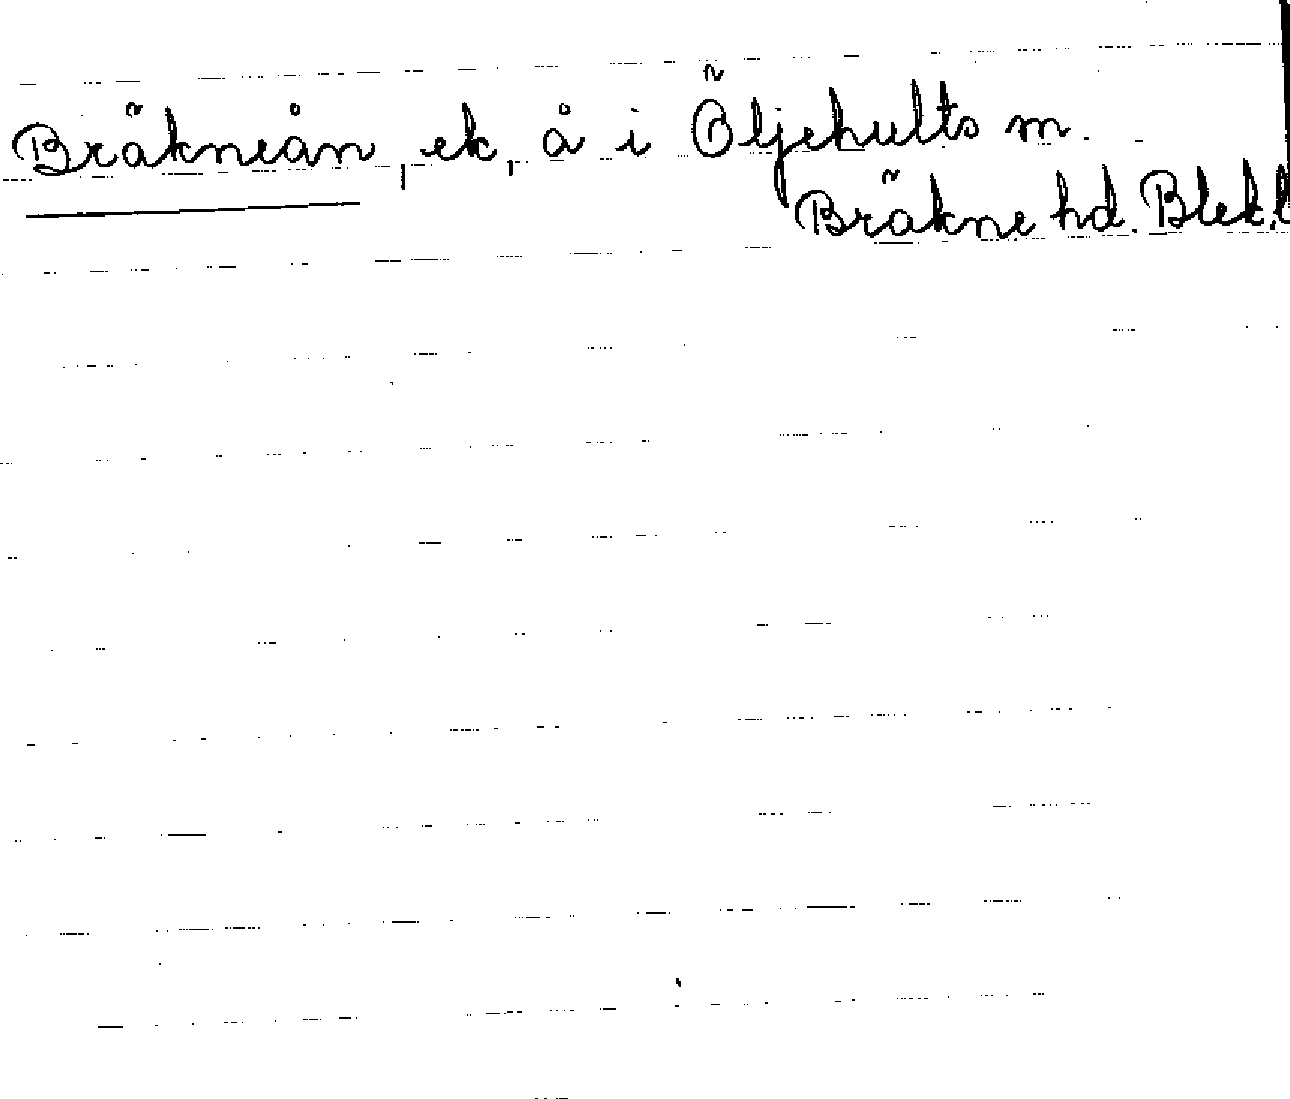 Bräkneån, ek, å i Öljehults m.
Bräkne hd. Blek.l